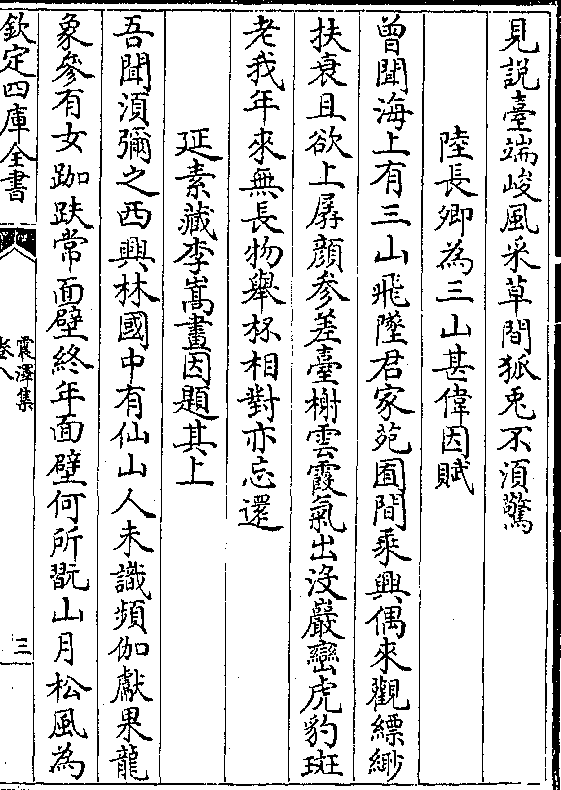 見說臺端峻風采草間狐兎不湏驚
陸長卿為三山甚偉因賦
曾聞海上有三山飛墜君家苑囿間乘興偶來觀縹緲
扶衰且欲上孱顔參差臺榭雲霞氣出沒巖巒虎豹斑
老我年來無長物舉杯相對亦忘還
延素藏李嵩畫因題其上
吾聞湏彌之西興林國中有仙山人未識頻伽獻果龍
象參有女跏趺常面壁終年面壁何所翫山月松風為
欽定四庫全書
震澤集
卷八
三